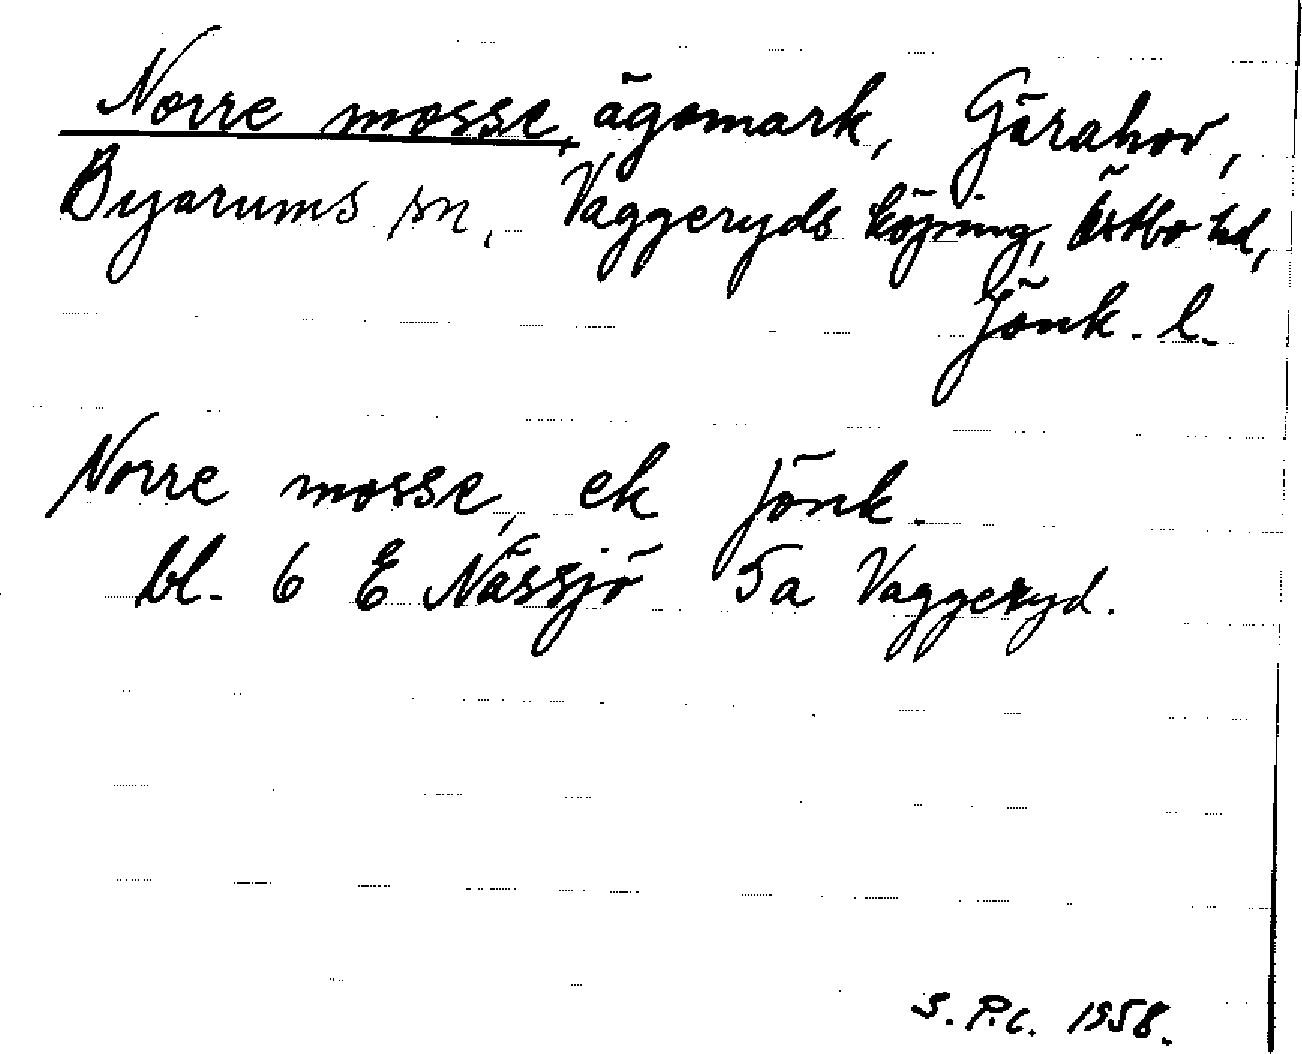 Norre mosse, ägomark, Gärahov,
Byarums sn, Vaggeryds köping, Östbo hd,
Jönk. l.
Norre mosse, ek Jönk.
bl. 6 E Nässjö 5a Vaggeryd.
S. P.C. 1958.